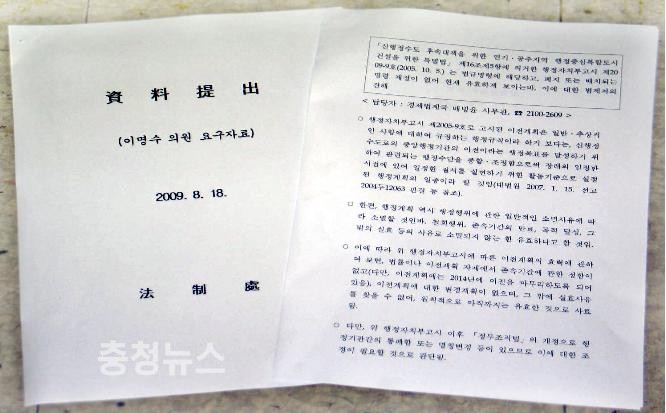 資料提出
(이명수 의원 요구자료)
2009. 8. 18.
法制處
충청뉴스
「신행정수도 후속대책을 위한 연기·공주지역 행정중심복합도시
건설을 위한 특별법」 제16조제5항에 의거한 행정자치부고시 제20
09-9호(2005. 10. 5.)는 법규명령에 해당하고, 폐지 또는 배치되는
명령 제정이 없어 현재 유효하게 보이는바, 이에 대한 법제처의
견해
< 담당자 : 경제법제국 배빌윤 사무관, ☎ 2100-2609 >
○ 행정자치부고시 제2005-9호로 고시된 이전계획은 일반·추상적
인 사항에 대하여 규정하는 행정규칙이라 하기 보다는, 신행정
수도로의 중앙행정기관의 이전이라는 행정목표를 달성하기 위
하여 관련되는 행정수단을 종합·조정함으로써 장래의 일정한
시점에 있어 일정한 질서를 실현하기 위한 활동기준으로 설정
된 행정계획의 일종이라 할 것임(대법원 2007. 1. 15. 선고
2004두12063 판결 등 참조).
□ 한편, 행정계획 역시 행정행위에 관한 일반적인 소멸사유에 따
라 소멸할 것인바, 철회행위, 존속기간의 만료, 목적 달성, 그
밖의 실효 등의 사유로 소멸되지 않는 한 유효하다고 할 것임.
○ 이에 따라 위 행정자치부고시에 따른 이전계획의 효력에 관하
여 보면, 법률이나 이전계획 자체에서 존속기간에 관한 정함이
없고(다만, 이전계획에는 2014년에 이전을 마무리하도록 되어
있음), 이전계획에 대한 변경계획이 없으며, 그 밖에 실효사유
를 찾을 수 없어, 원칙적으로 아직까지는 유효한 것으로 사료
됨.
○ 다만, 위 행정자치부고시 이후 「정부조직법」의 개정으로 행
정기관간의 통폐합 또는 명칭변경 등이 있으므로 이에 대한 조
정이 필요할 것으로 판단됨.